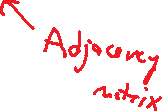 Adjacency
matrix